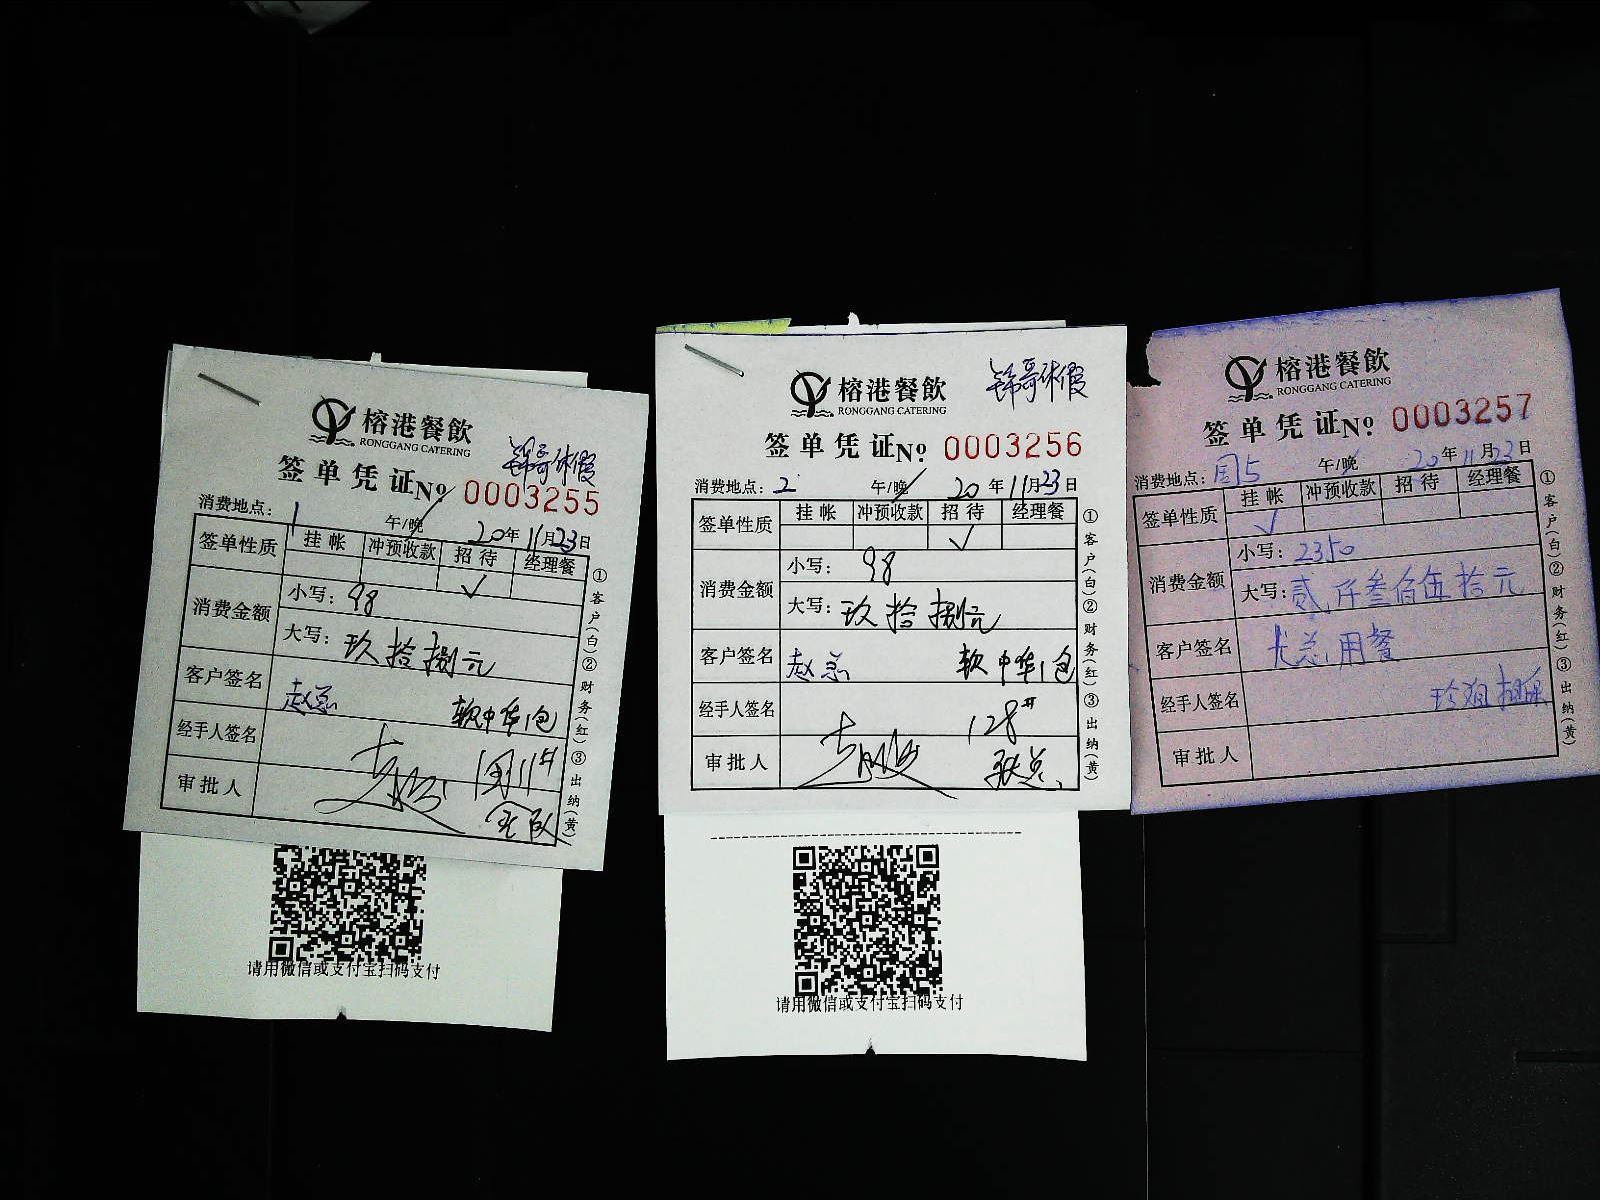 榕港餐飲
RONGGANG CATERING
锦哥休假
签单凭证 No. 0003255
消费地点: 1 午/晚 20年11月23日
签单性质 挂帐 冲预收款 招待 经理餐
✓
消费金额 小写: 98
大写: 玖拾捌元
客户签名 赵总 软中华1包
经手人签名
审批人
①客户(白)②财务(红)③出纳(黄)
请用微信或支付宝扫码支付
榕港餐飲
RONGGANG CATERING
锦哥休假
签单凭证 No. 0003256
消费地点: 2 午/晚 20年11月23日
签单性质 挂帐 冲预收款 招待 经理餐
✓
消费金额 小写: 98
大写: 玖拾捌元
客户签名 赵总 软中华1包
经手人签名 128#
审批人 张总
①客户(白)②财务(红)③出纳(黄)
请用微信或支付宝扫码支付
榕港餐飲
RONGGANG CATERING
签单凭证 No. 0003257
消费地点: 国5 午/晚 20年11月23日
签单性质 挂帐 冲预收款 招待 经理餐
✓
消费金额 小写: 2350
大写: 贰仟叁佰伍拾元
客户签名 尤总用餐
经手人签名
审批人
①客户(白)②财务(红)③出纳(黄)